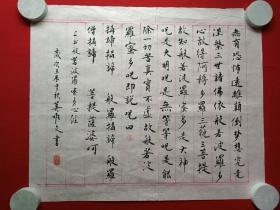 無有恐怖遠離顛倒夢想究竟
涅槃三諸佛依般若波羅多
心故得阿耨多羅三藐三菩提
故知般若波羅蜜多是大神
咒是大明咒是無等等咒是能
除一切苦真實不虛故般若波
羅蜜多咒即說咒曰
揭諦揭諦 般羅揭諦 般羅
僧揭諦 菩提薩婆訶
般若波羅蜜多心經